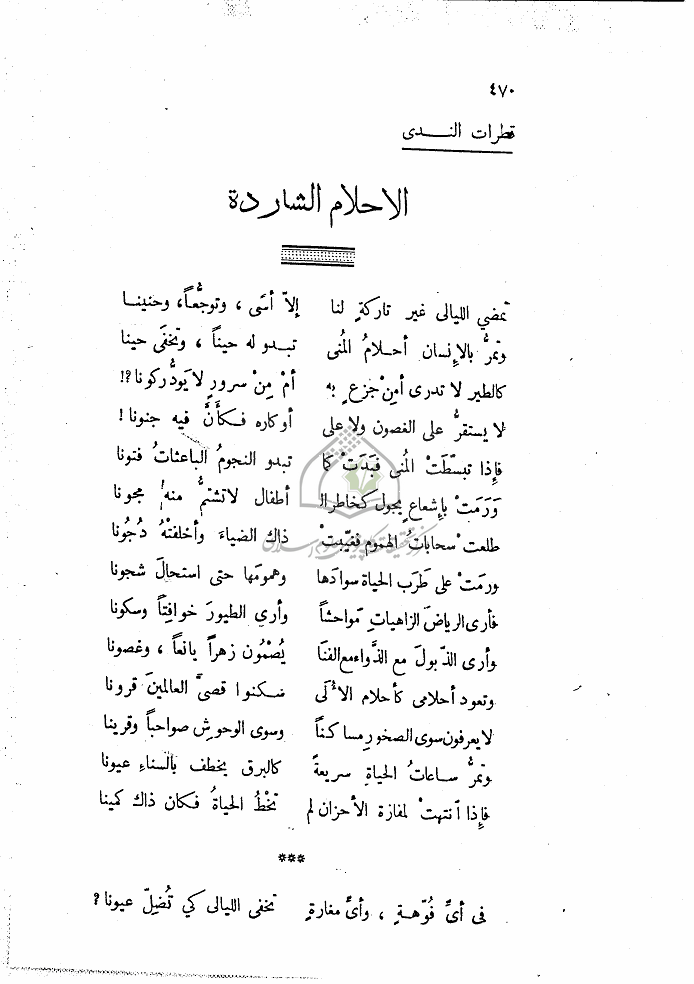 ٤٧٠
قطرات النـــدى
الاحلام الشاردة
تمضي الليالى غير تاركةٍ لنا إلاّ أسًى ، وتوجُّعاً، وحنينا
وتمرُّ بالإنسان أحلامُ المُنى تبدو له حيناً ، وتخفَى حينا
كالطير لا تدرى أمِنْ جزع به أمْ مِنْ سرورٍ لا يَودُّ ركونا ؟!
لا يستقرُّ على الغصون ولا على أوكاره فكأنَّ فيه جنونا !
فإذا تبسّطَتْ المُنى فبَدَتْ كما تبدو النجومُ الباعثاتُ فتونا
وَرَمَتْ بإشعاعٍ يجول كخاطر الـ أطفال لا تشتمُّ منه مجونا
طلعت سحاباتُ الهموم فغيّبتْ ذاك الضياءَ وأخلفتْهُ دُجُونا
ورمتْ على طَرَب الحياة سوادَها وهمومَها حتى استحالَ شجونا
فأرى الرياضَ الزاهياتِ مَواحشاً وأري الطيورَ خوافِتاً وسكونا
وأرى الذبولَ مع الذَّواء مع الفنَا يُصْمُون زهراً يانعاً ، وغصونا
وتعود أحلامى كأحلام الأُلى سكنوا قصىَّ العالمينَ قرونا
لا يعرفون سوى الصخورِ مساكناً وسوى الوحوشِ صواحباً وقرينا
وتمرُّ ساعاتُ الحياةِ سريعةً كالبرق يخطف بالسناءِ عيونا
فإذا انتهتْ لمفازة الأحزان لم تخْطُ الحياةُ فكان ذاك كمينا
***
فى أىِّ فُوّهةٍ ، وأىِّ مغارةٍ تخفى الليالى كي تُضِلّ عيونا ؟